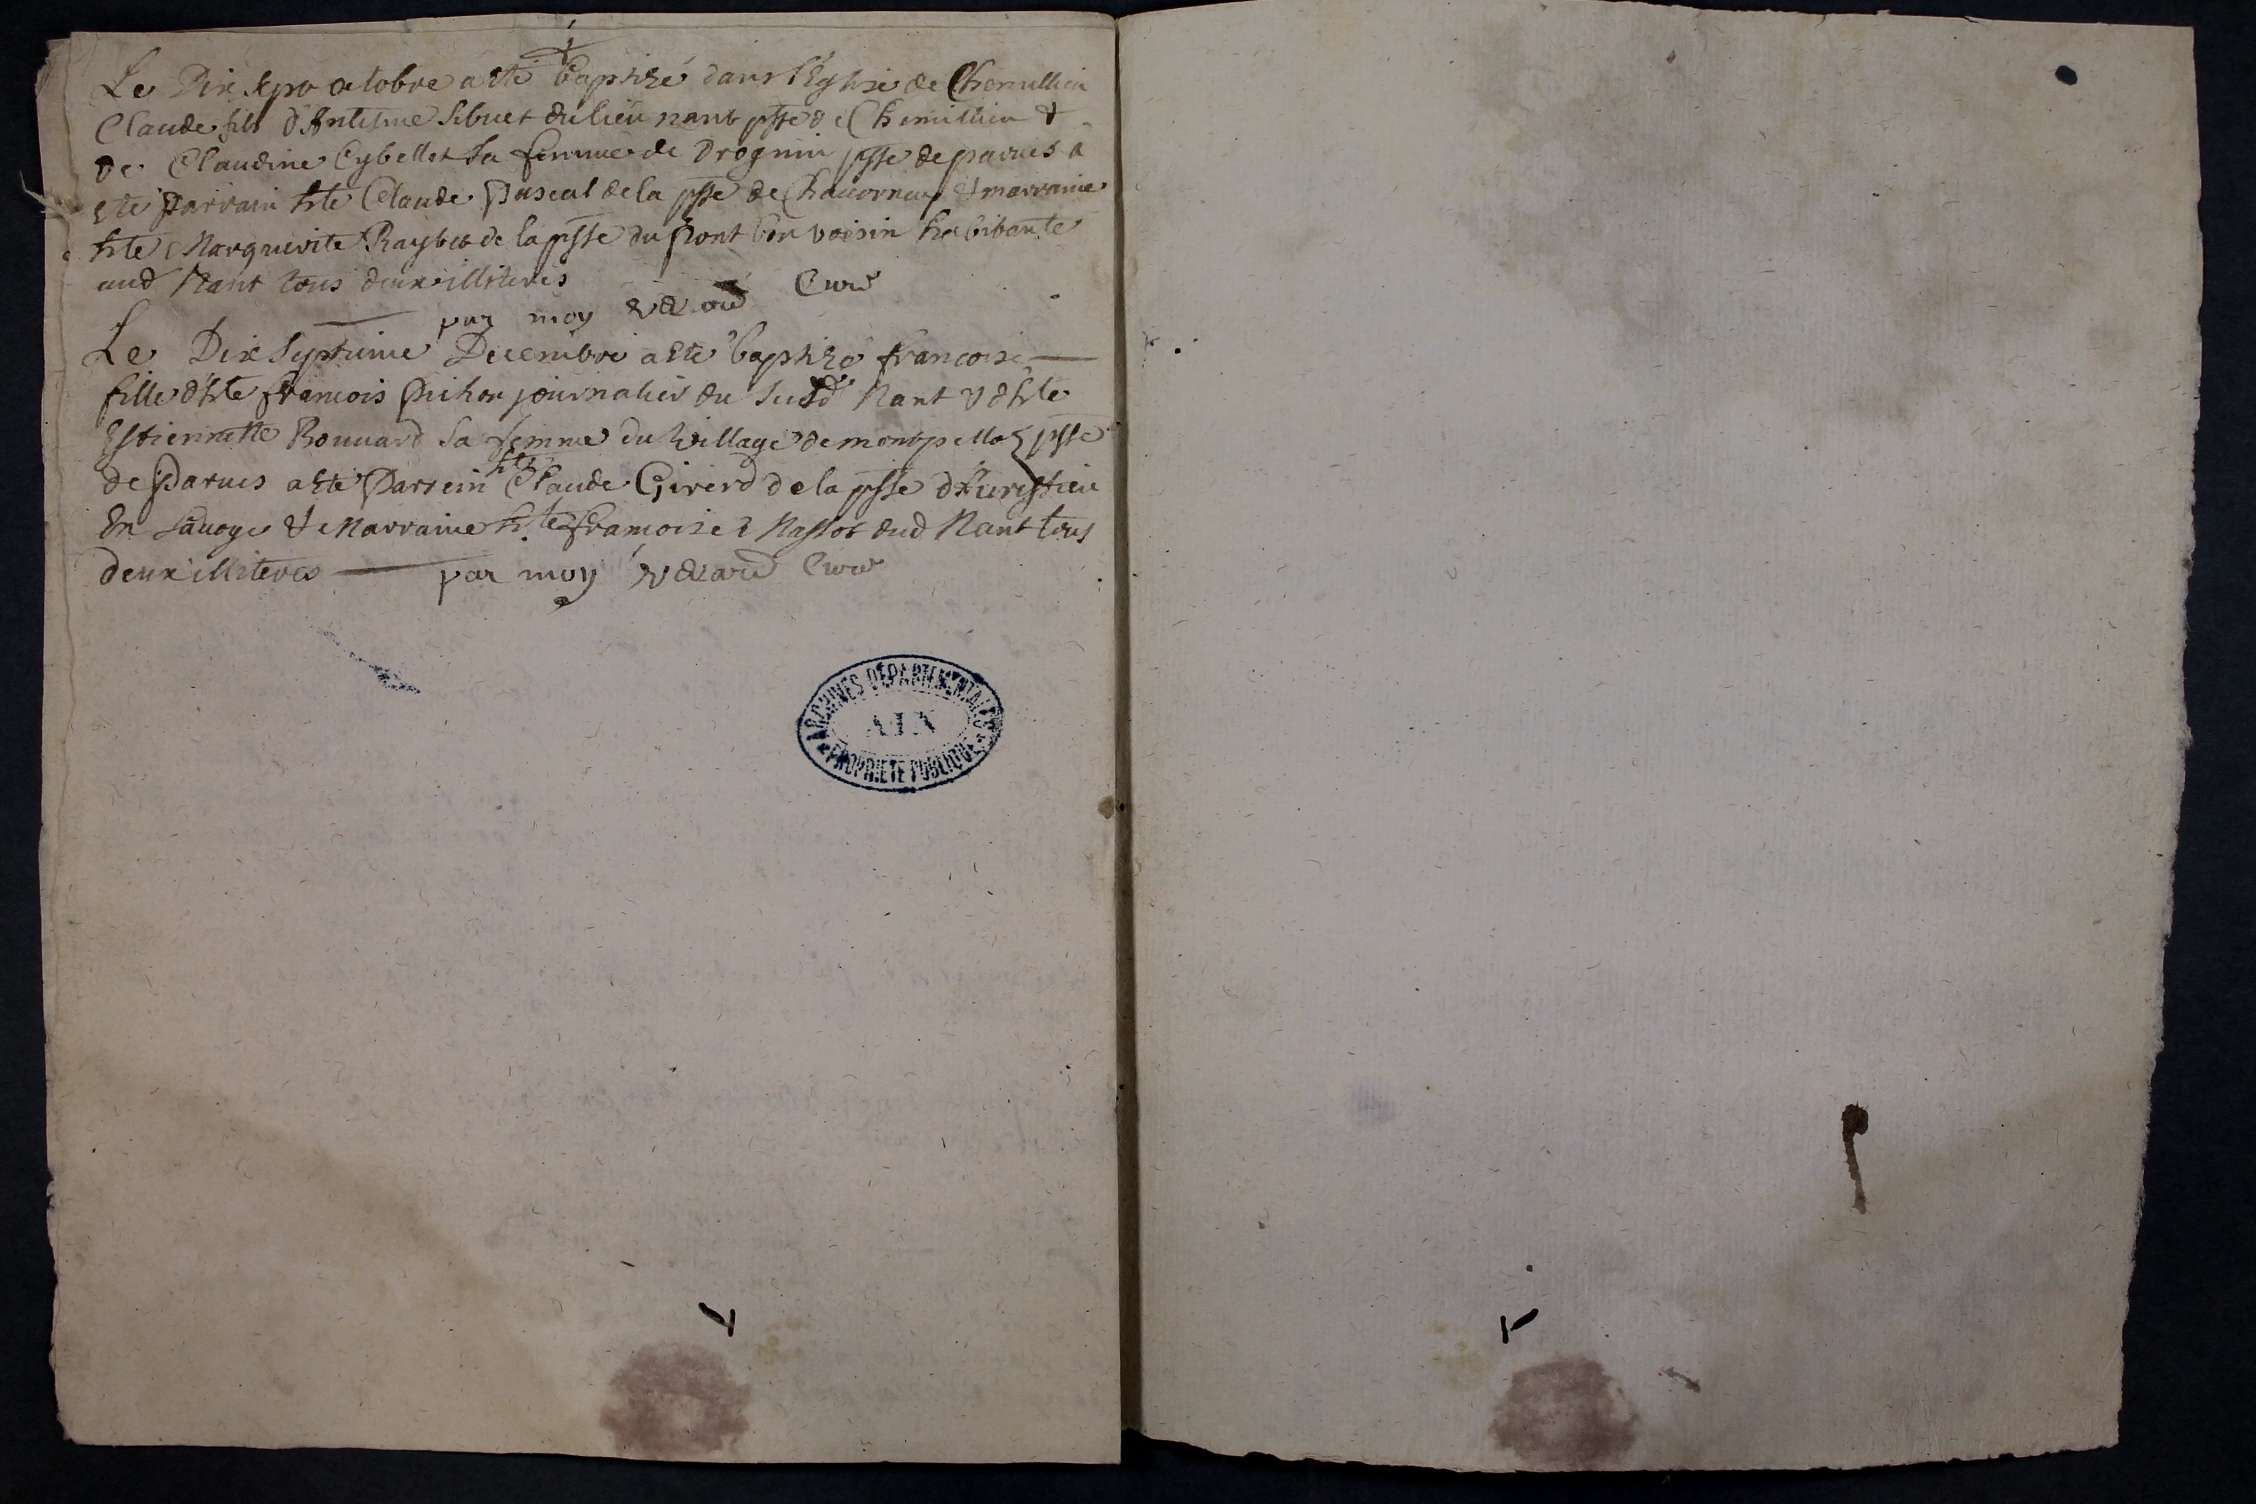 Le Dix sept octobre a esté baptizé dans l'Eglise de Chemillieu
Claude fils d'Antelme Sibuet du lieu nant psse de Chemillieu &
de Claudine Cybellet sa femme de Drognin psse de parves a
esté parrain hte Claude Pascal de la psse de & marraine
hte Marguerite Raybet de la psse du pont bon voisin habitante
aud Nant tous deux illiteres
par moy Curé
Le Dix Septieme Decembre a esté baptizé francoise
fille d'hte francois Pichon journalier du susd Nant & d'hte
Estiennette Bouvard sa femme du village de montpellaz psse
de Parves a esté Parrein hte Claude Girerd de la psse
En Savoye & Marraine hte francoise Massot dud Nant tous
deux illiteres par moy Curé
ARCHIVES DÉPARTEMENTALES
AIN
PROPRIÉTÉ PUBLIQUE